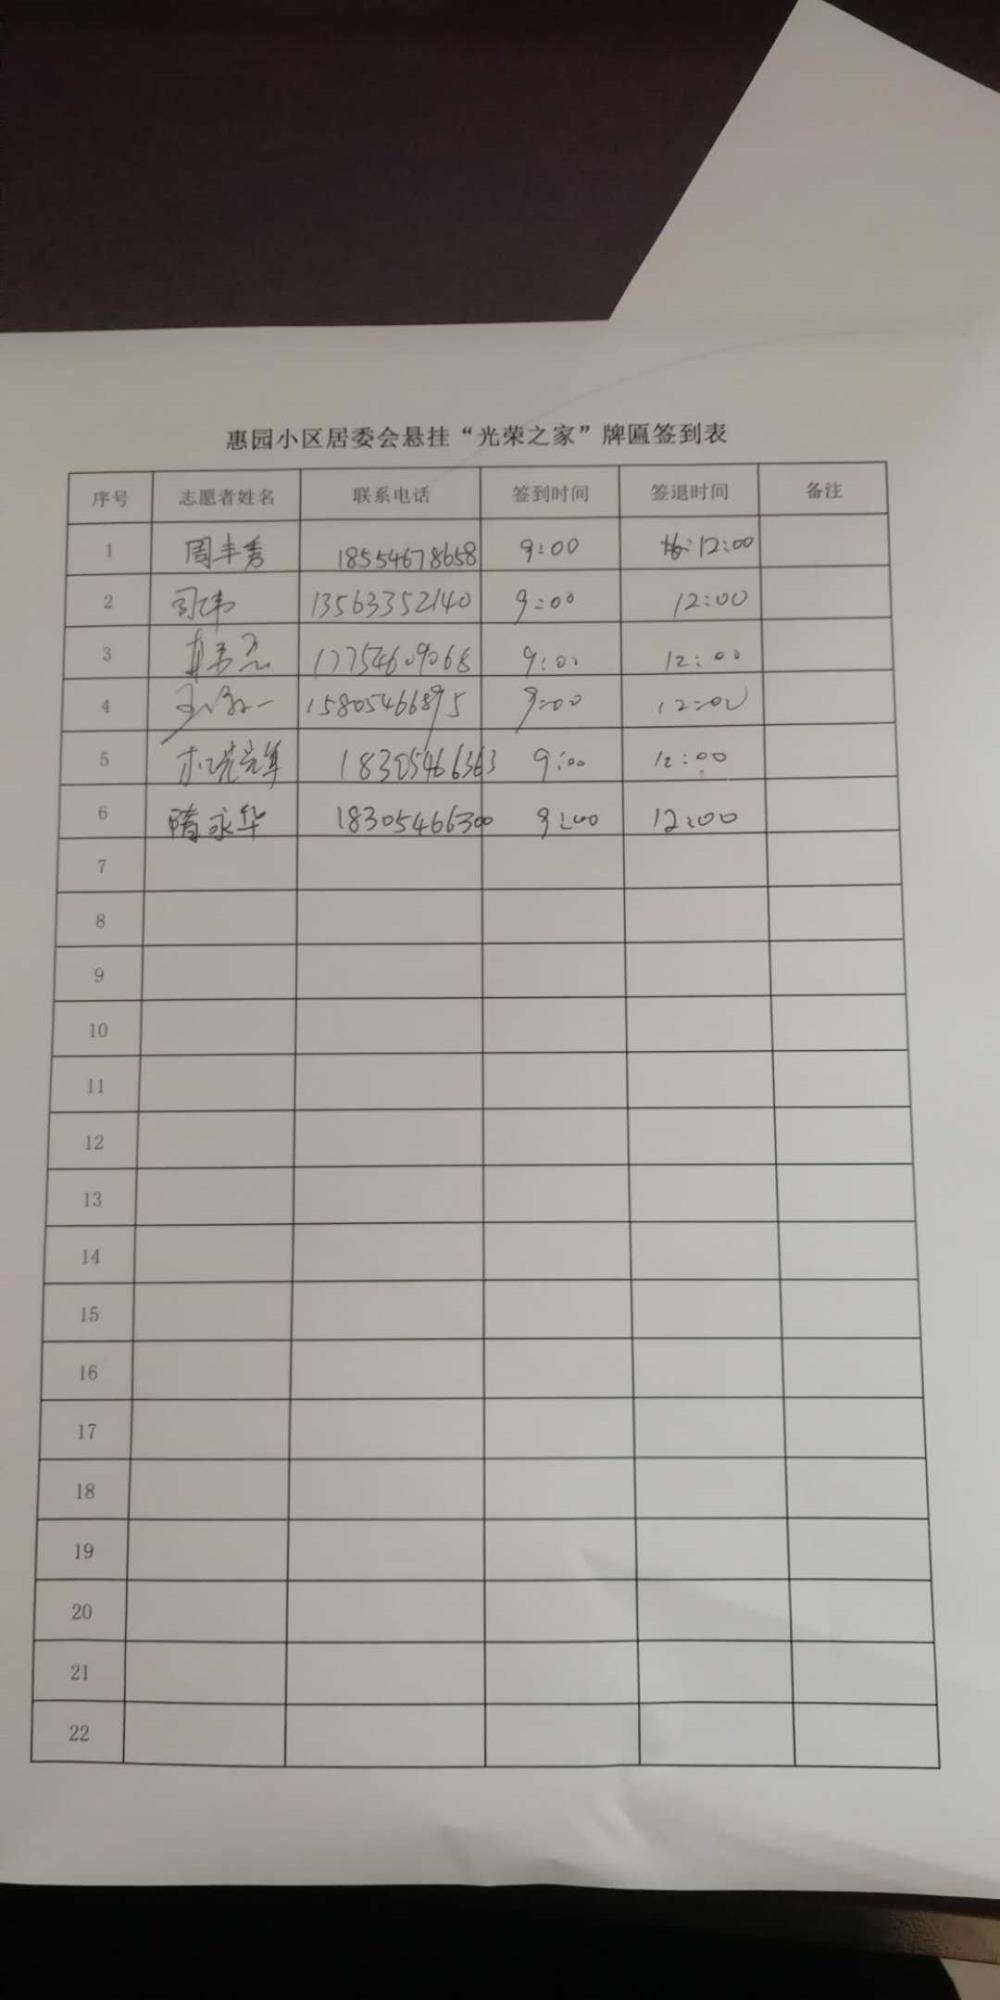 惠园小区居委会悬挂“光荣之家”牌匾签到表
序号 志愿者姓名 联系电话 签到时间 签退时间 备注
1 周丰秀 18554678658 9:00 12:00
2 司伟 13563352140 9:00 12:00
3 17754609068 9:00 12:00
4 15805466895 9:00 12:00
5 18305466363 9:00 12:00
6 隋永华 18305466300 9:00 12:00
7
8
9
10
11
12
13
14
15
16
17
18
19
20
21
22